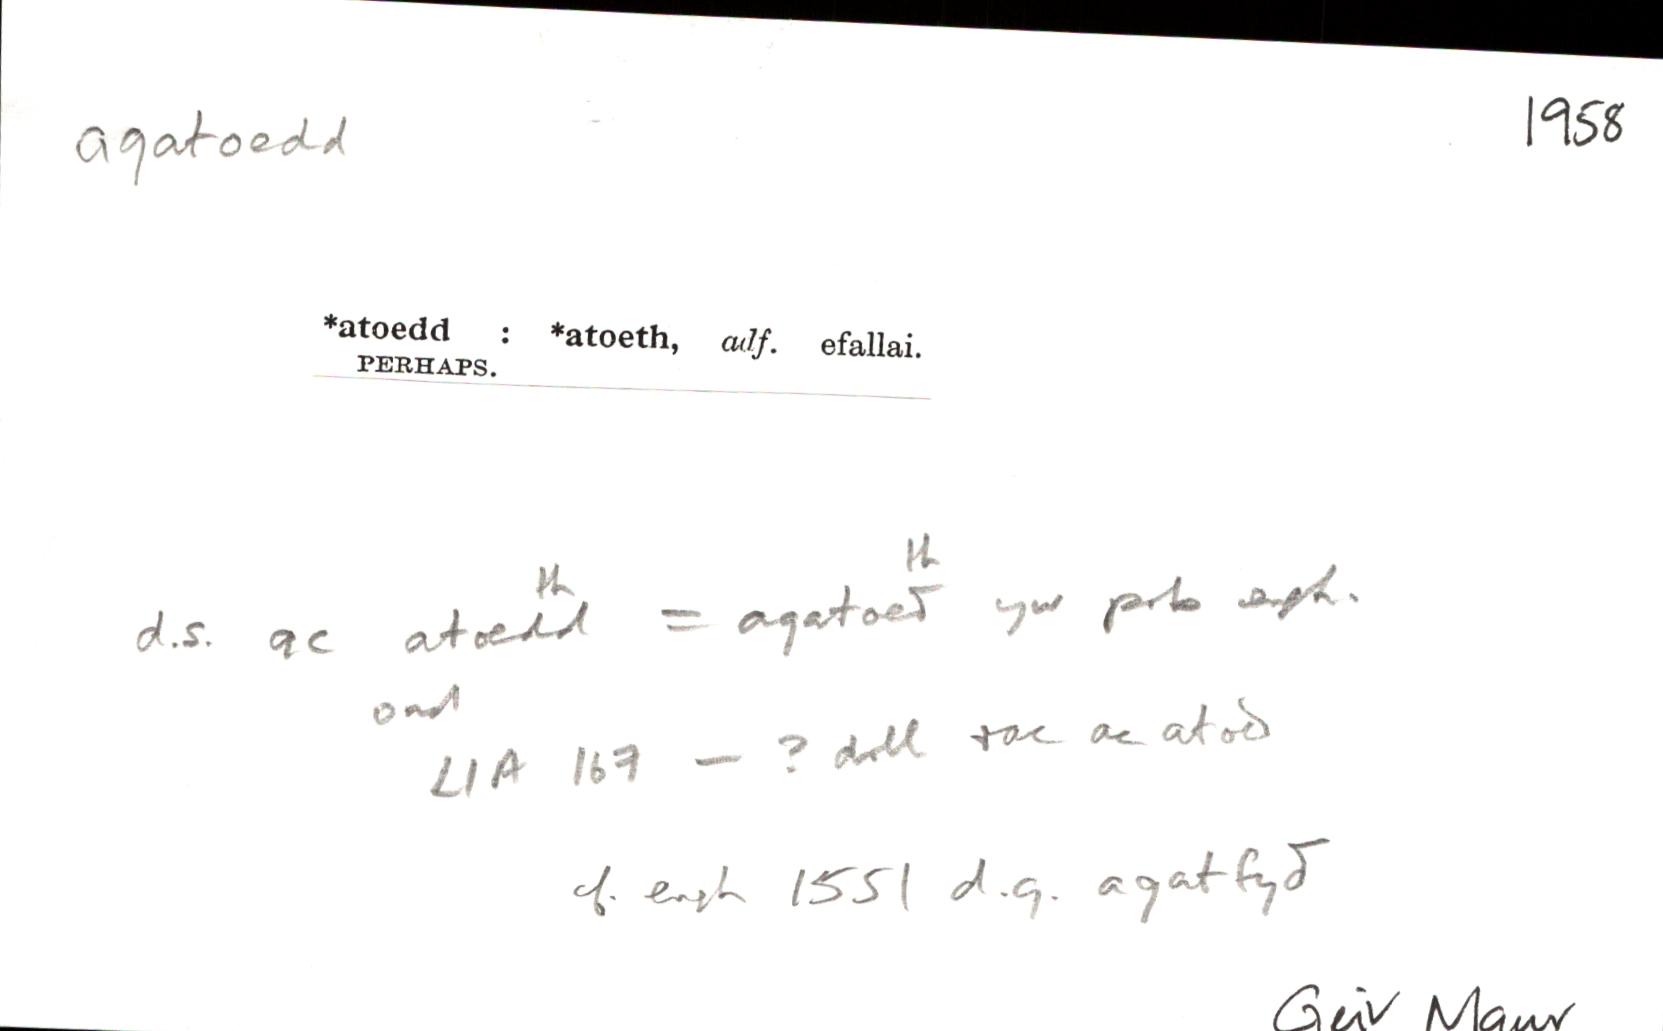 agatoedd 1958
*atoedd : *atoeth, adf. efallai.
PERHAPS.
th th
d.s. ac atoedd = agatoeđ yw pob engh.
ond
LlA 167 – ? darll rac ac atoeđ
cf. engh 1551 d.g. agatfyđ
Geir Mawr